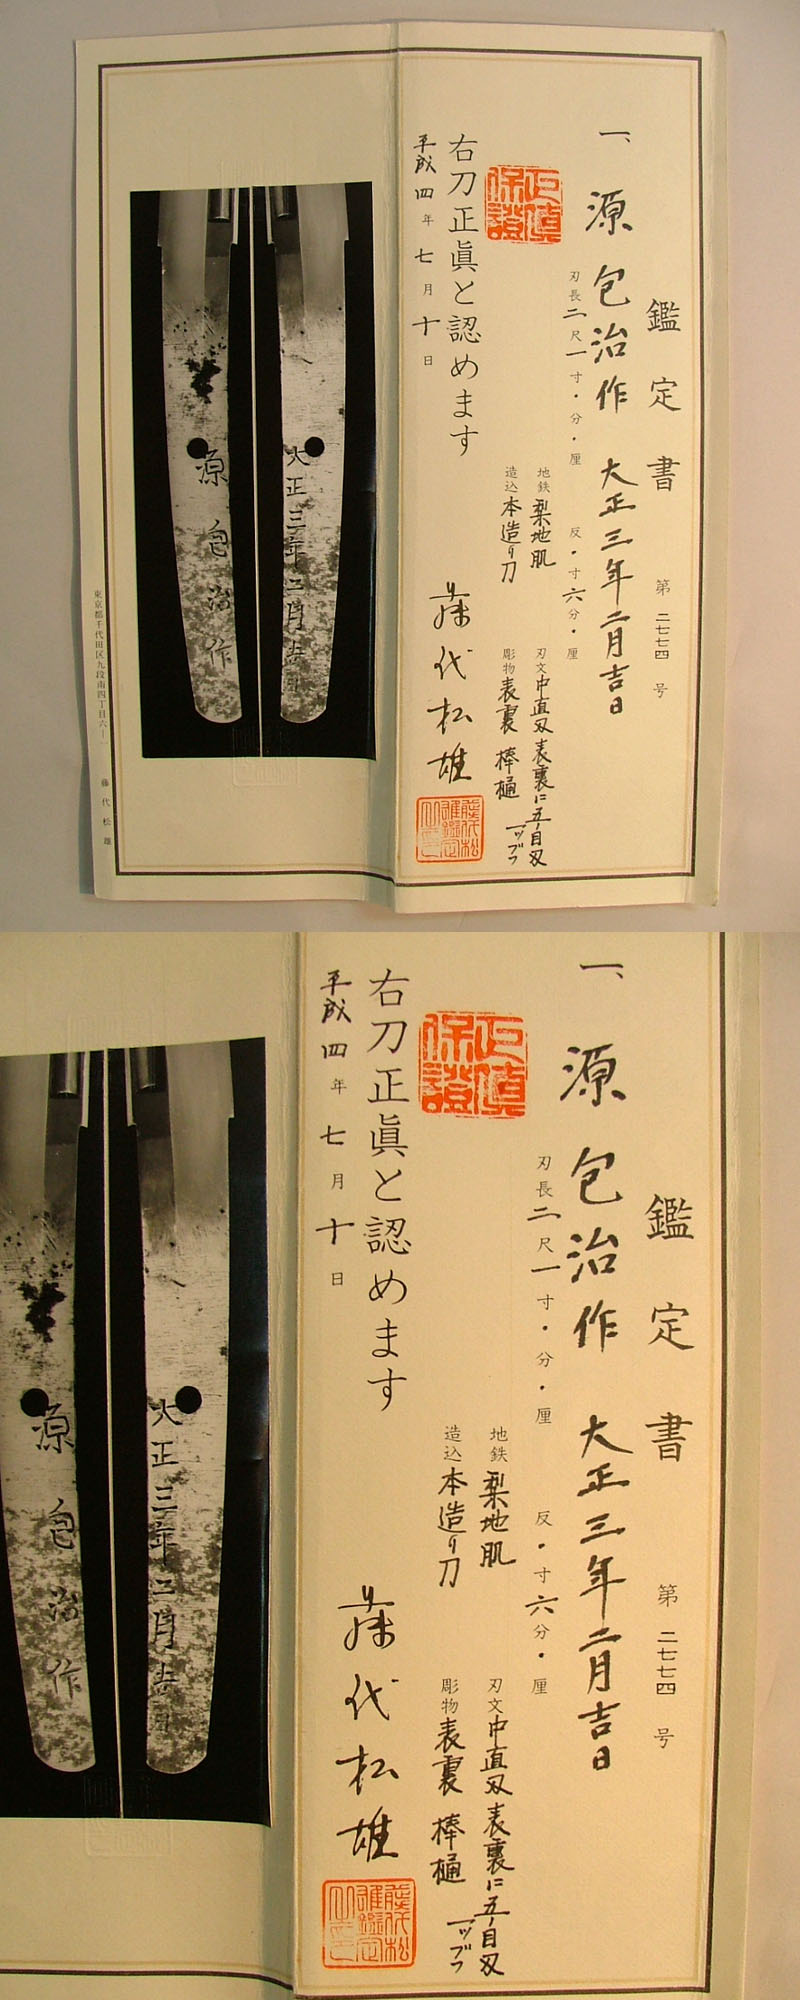 鑑定書
第二七七四号
一、源包治作 大正三年二月吉日
刃長二尺一寸・分・厘 反・寸六分・厘
地鉄 梨地肌
刃文 中直刃表裏に五ノ目刃一ツヅツ
造込 本造り刀
彫物 表裏 棒樋
正真保證
右刀正眞と認めます
平成四年七月十日
藤代松雄
藤代松雄鑑定之印
大正三年二月吉日
源包治作
東京都千代田区九段南四丁目六ー一 藤代松雄
一、源包治作 大正三年二月吉日
鑑定書
第二七七四号
刃長二尺一寸・分・厘 反・寸六分・厘
地鉄 梨地肌
刃文 中直刃表裏に五ノ目刃一ツヅツ
造込 本造り刀
彫物 表裏 棒樋
正真保證
右刀正眞と認めます
平成四年七月十日
藤代松雄
藤代松雄鑑定之印
大正三年二月吉日
源包治作